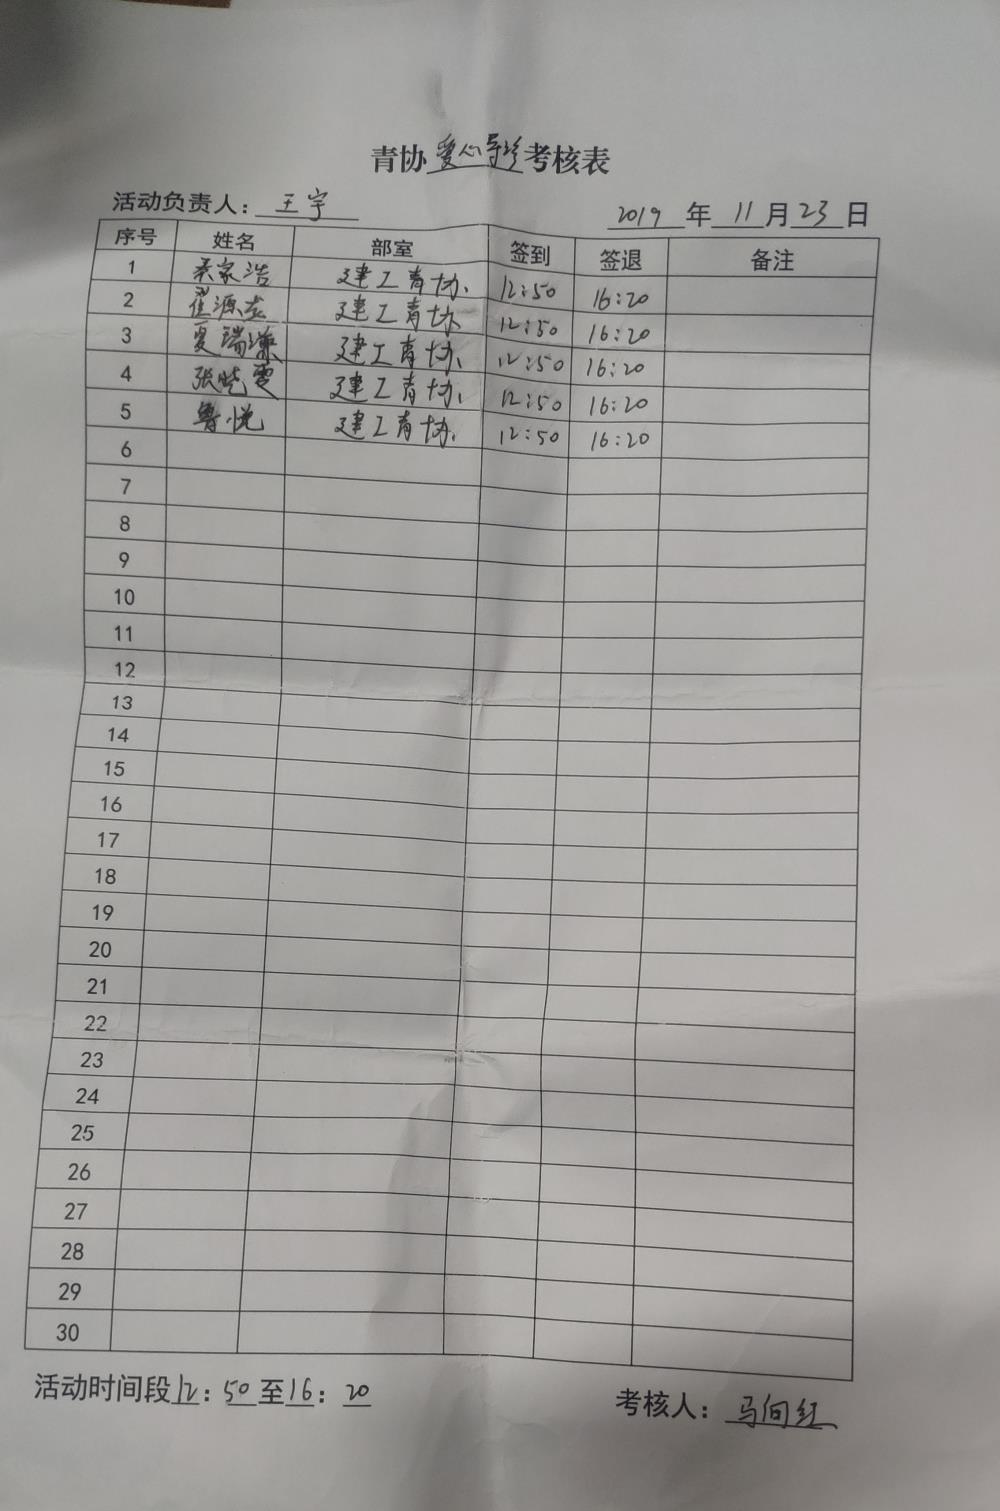 青协爱心导诊考核表
活动负责人：王宇 2019年11月23日
序号 姓名 部室 签到 签退 备注
1 秦家浩 建工青协 12:50 16:20
2 翟源 建工青协 12:50 16:20
3 夏瑞 建工青协 12:50 16:20
4 张晓雯 建工青协 12:50 16:20
5 鲁悦 建工青协 12:50 16:20
6
7
8
9
10
11
12
13
14
15
16
17
18
19
20
21
22
23
24
25
26
27
28
29
30
活动时间段12:50至16:20 考核人：马向红